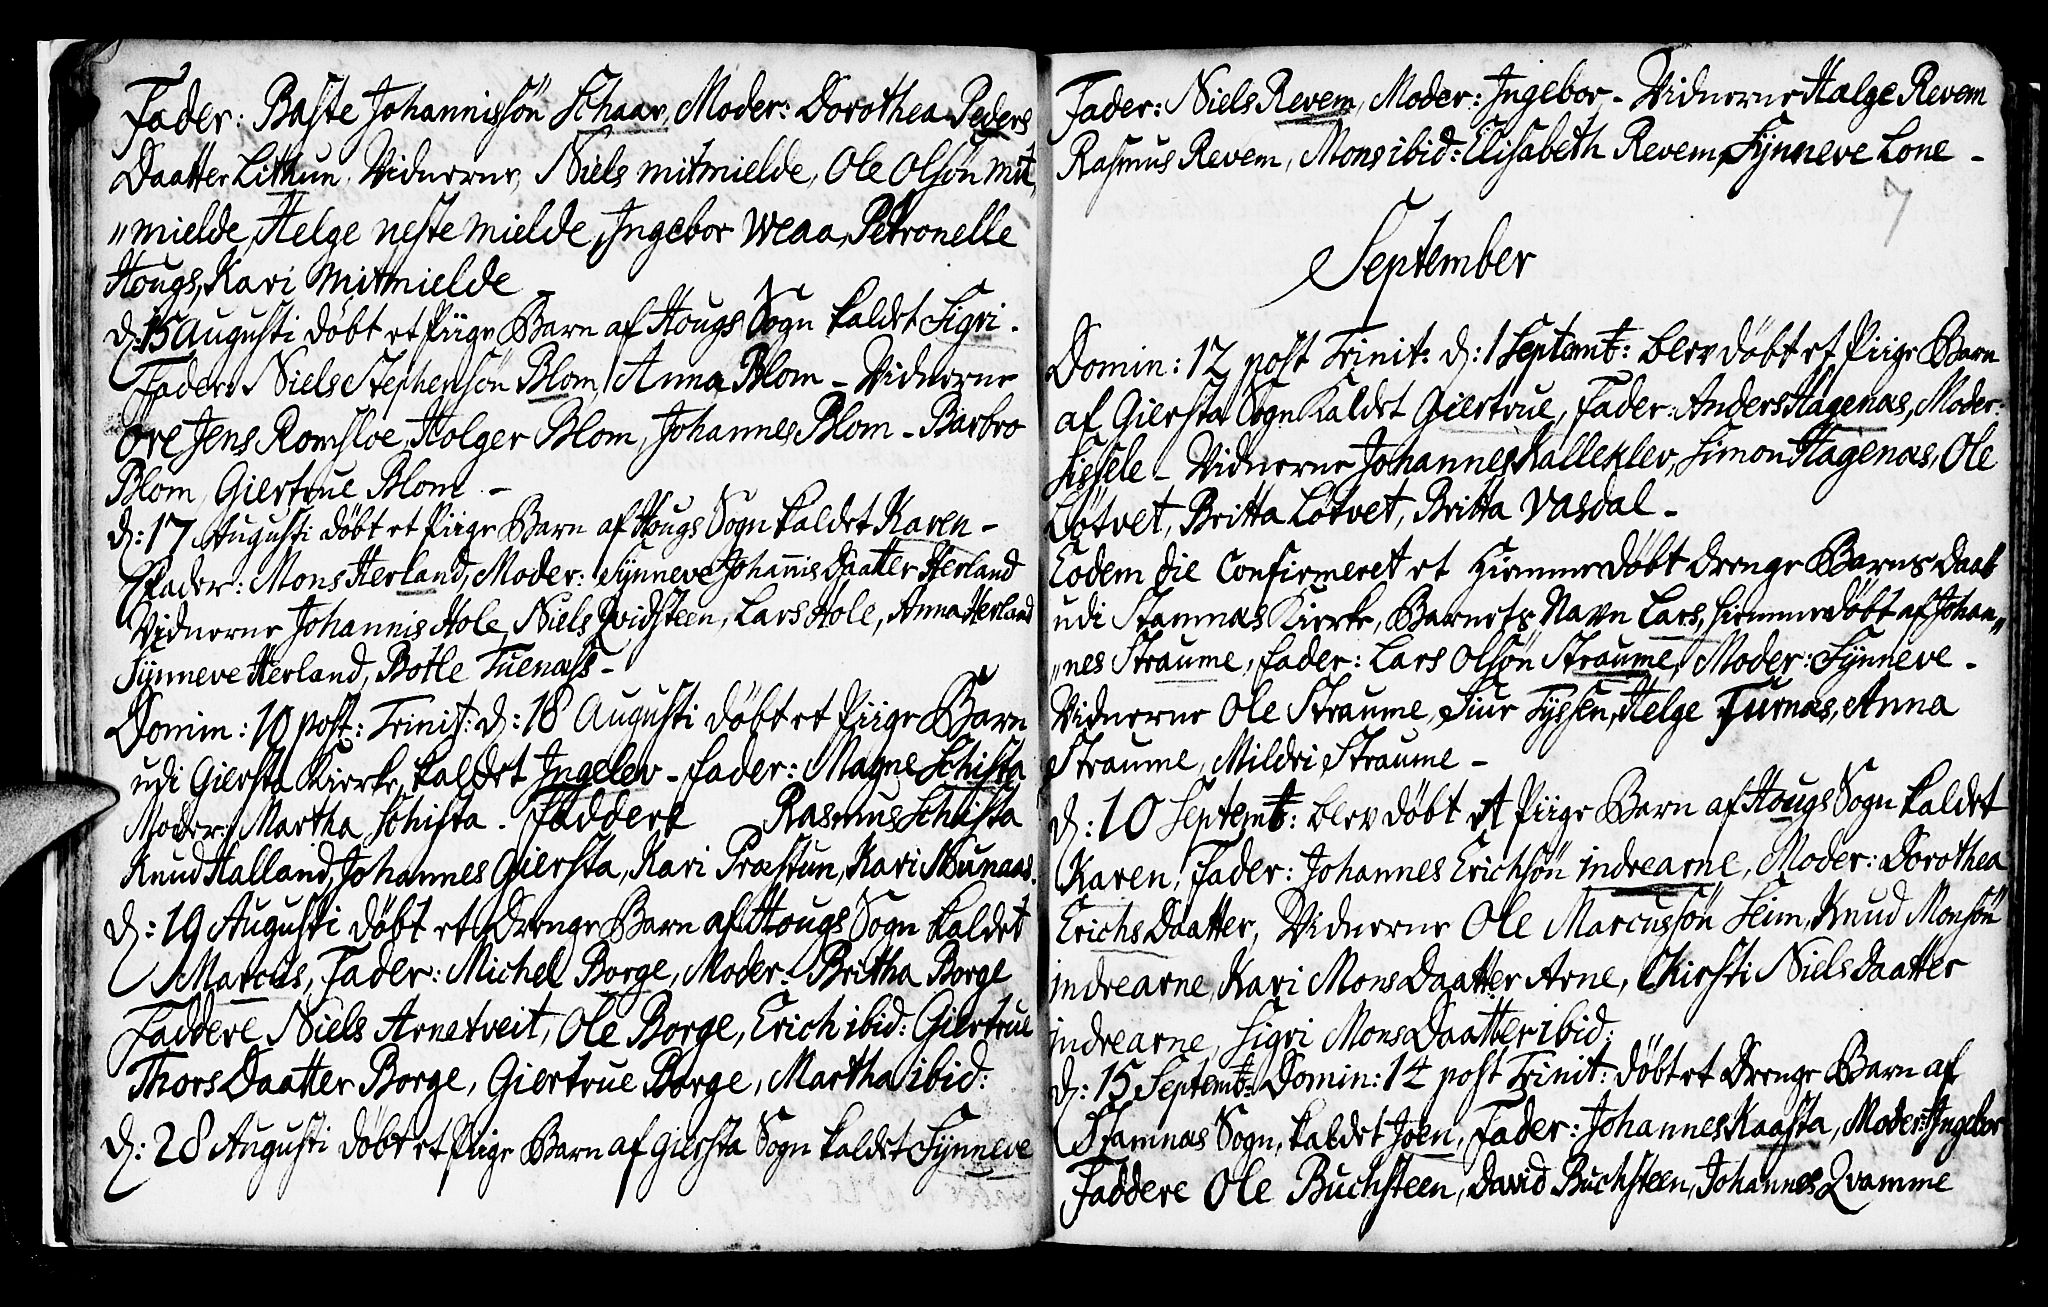 Fader: Baste Johannissön Schaar, Moder: Dorothea Peders
Daatter Lithun. Vidnerne, Niels mitmielde, Ole Olsön mit,
„mielde, Helge neste mielde, Ingebor Weaa, Petronelle
Hougs, Kari mitmielde
d: 15 Augusti döbt et Piige Barn af Hougs Sogn kaldet Sigri.
Fader: Niels Stephensön Blom, Anna Blom - Vidnerne
Ore Jens Romsloe, Holger Blom, Johannes Blom - Barbro
Blom, Giertrue Blom -
d: 17 Augusti döbt et Piige Barn af Hougs Sogn kaldet Karen -
Fader: Mons Herland, Moder: Synneve Johannis Daatter Herland
Vidnerne Johannis Hole, Niels Qvidsteen, Lars Hole, Anna Herland
Synneve Herland, Botle Tuenass -
Domin: 10 post: Trinit: d: 18 Augusti döbt et Piige Barn
udi Giersta Kierke, kaldet Ingelev - fader: Magne Schista
Moder: Martha Schista - Faddere Rasmus Schista
Knud Halland, Johannes Giersta, Kari Præstun, Kari Munaas.
d: 19 Augusti döbt et Drenge Barn af Hougs Sogn kaldet
Marcus, Fader: Michel Borge, Moder: Britha Borge
Faddere Niels Arnetveit, Ole Borge, Erich ibid: Giertrue
Thors Daatter Borge, Giertrue Borge, Martha ibid:
d: 28 Augusti döbt et Piige Barn af Giersta Sogn kaldet Synneve
Fader: Niels Revem, Moder: Ingebor - Vidnerne Halge Revem
Rasmus Revem, Mons ibid: Elisabeth Revem, Synneve Lone -
7
September
Domin: 12 post Trinit: d: 1 Septemb: blev döbt et Piige Barn
af Giersta Sogn kaldet Giertrue, Fader: Anders Hagenas, Moder:
Sissele - Vidnerne Johannes Kalleklev, Simon Hagenæs, Ole
Lötvet, Britta Lötvet, Britta Vasdal -
Eodem die Confirmeret et Hiemmedöbt Drenge Barns Daab
udi Stamnas Kierke, Barnets Navn Lars, hiemmedöbt af Johan„
„nes Straume, fader: Lars Olsön Straume, Moder: Synneve -
Vidnerne Ole Straume, Siur Tyssen, Helge Furnæs, Anna
Straume, Mildri Straume -
d: 10 Septemb: blev döbt et Piige Barn af Hougs Sogn kaldet
Karen, Fader: Johannes Erichsön indrearne, Moder: Dorothea
Erichs Daatter, Vidnerne Ole Marcussön Seim, Knud Monsön
indrearne, Kari Mons Daatter Arne, Chirsti Niels Daatter
indrearne, Sigri Mons Daatter ibid:
d: 15 Septemb: Domin: 14 post Trinit: döbt et Drenge Barn af
Stamnas Sogn, kaldet Joen, Fader: Johannes Kaasta, Moder: Ingebor
Faddere Ole Buchsteen, David Buchsteen, Johannes Qvamme